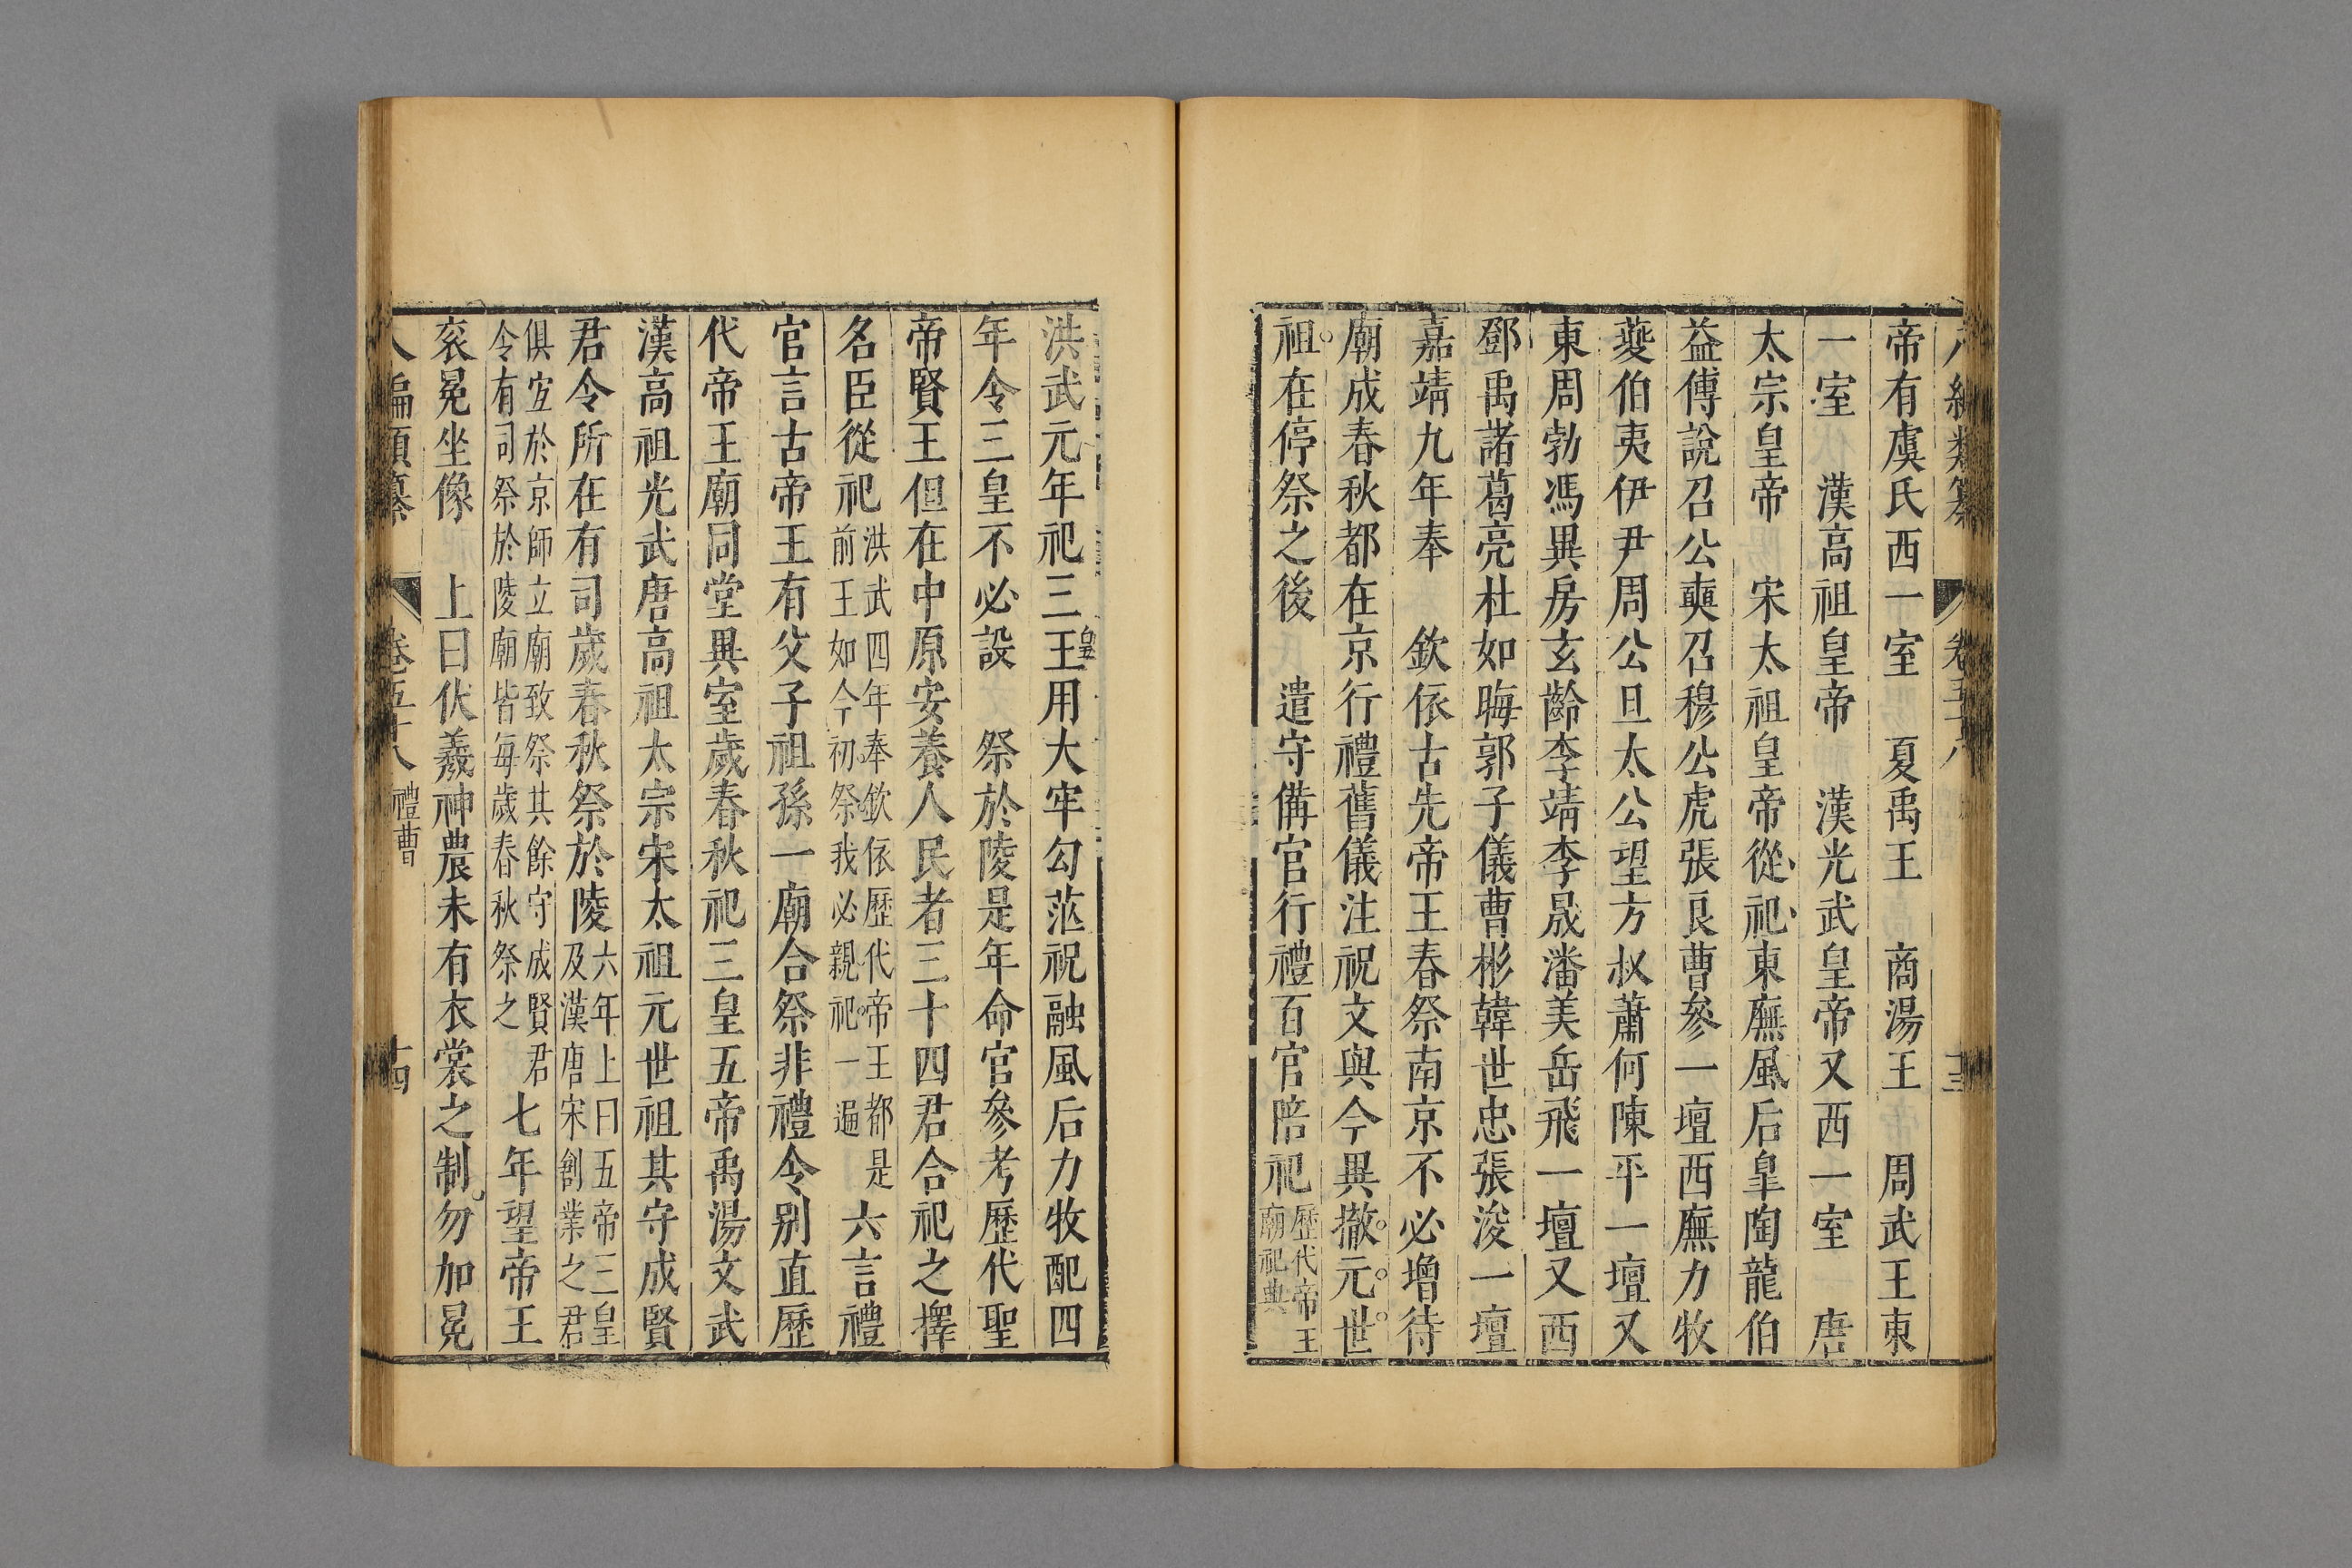 八編類纂 卷五十八 十三
帝有虞氏西一室 夏禹王 商湯王 周武王東
一室 漢高祖皇帝 漢光武皇帝又西一室 唐
太宗皇帝 宋太祖皇帝從祀東廡風后臯陶龍伯
益傅說召公奭召穆公虎張良曹參一壇西廡力牧
夔伯夷伊尹周公旦太公望方叔蕭何陳平一壇又
東周勃馮異房玄齡李靖李晟潘美岳飛一壇又西
鄧禹諸葛亮杜如晦郭子儀曹彬韓世忠張浚一壇
嘉靖九年奉 欽依古先帝王春祭南京不必增待
廟成春秋都在京行禮舊儀注祝文與今異撤元世
祖在停祭之後 遣守備官行禮百官陪祀歷代帝王
廟祀典
洪武元年祀三王用大牢勾茫祝融風后力牧配四
皇
年令三皇不必設 祭於陵是年命官參考歷代聖
帝賢王但在中原安養人民者三十四君合祀之擇
名臣從祀洪武四年奉欽依歷代帝王都是
前王如今初祭我必親祀一遍六言禮
官言古帝王有父子祖孫一廟合祭非禮令别直歷
代帝王廟同堂異室歲春秋祀三皇五帝禹湯文武
漢高祖光武唐高祖太宗宋太祖元世祖其守成賢
君令所在有司歲春秋祭於陵六年上曰五帝三皇
及漢唐宋創業之君
俱宐於京師立廟致祭其餘守成賢君
令有司祭於陵廟皆每歲春秋祭之七年望帝王
衮冕坐像 上曰伏羲神農未有衣裳之制勿加冕
八編類纂 卷五十八 禮曹 十四